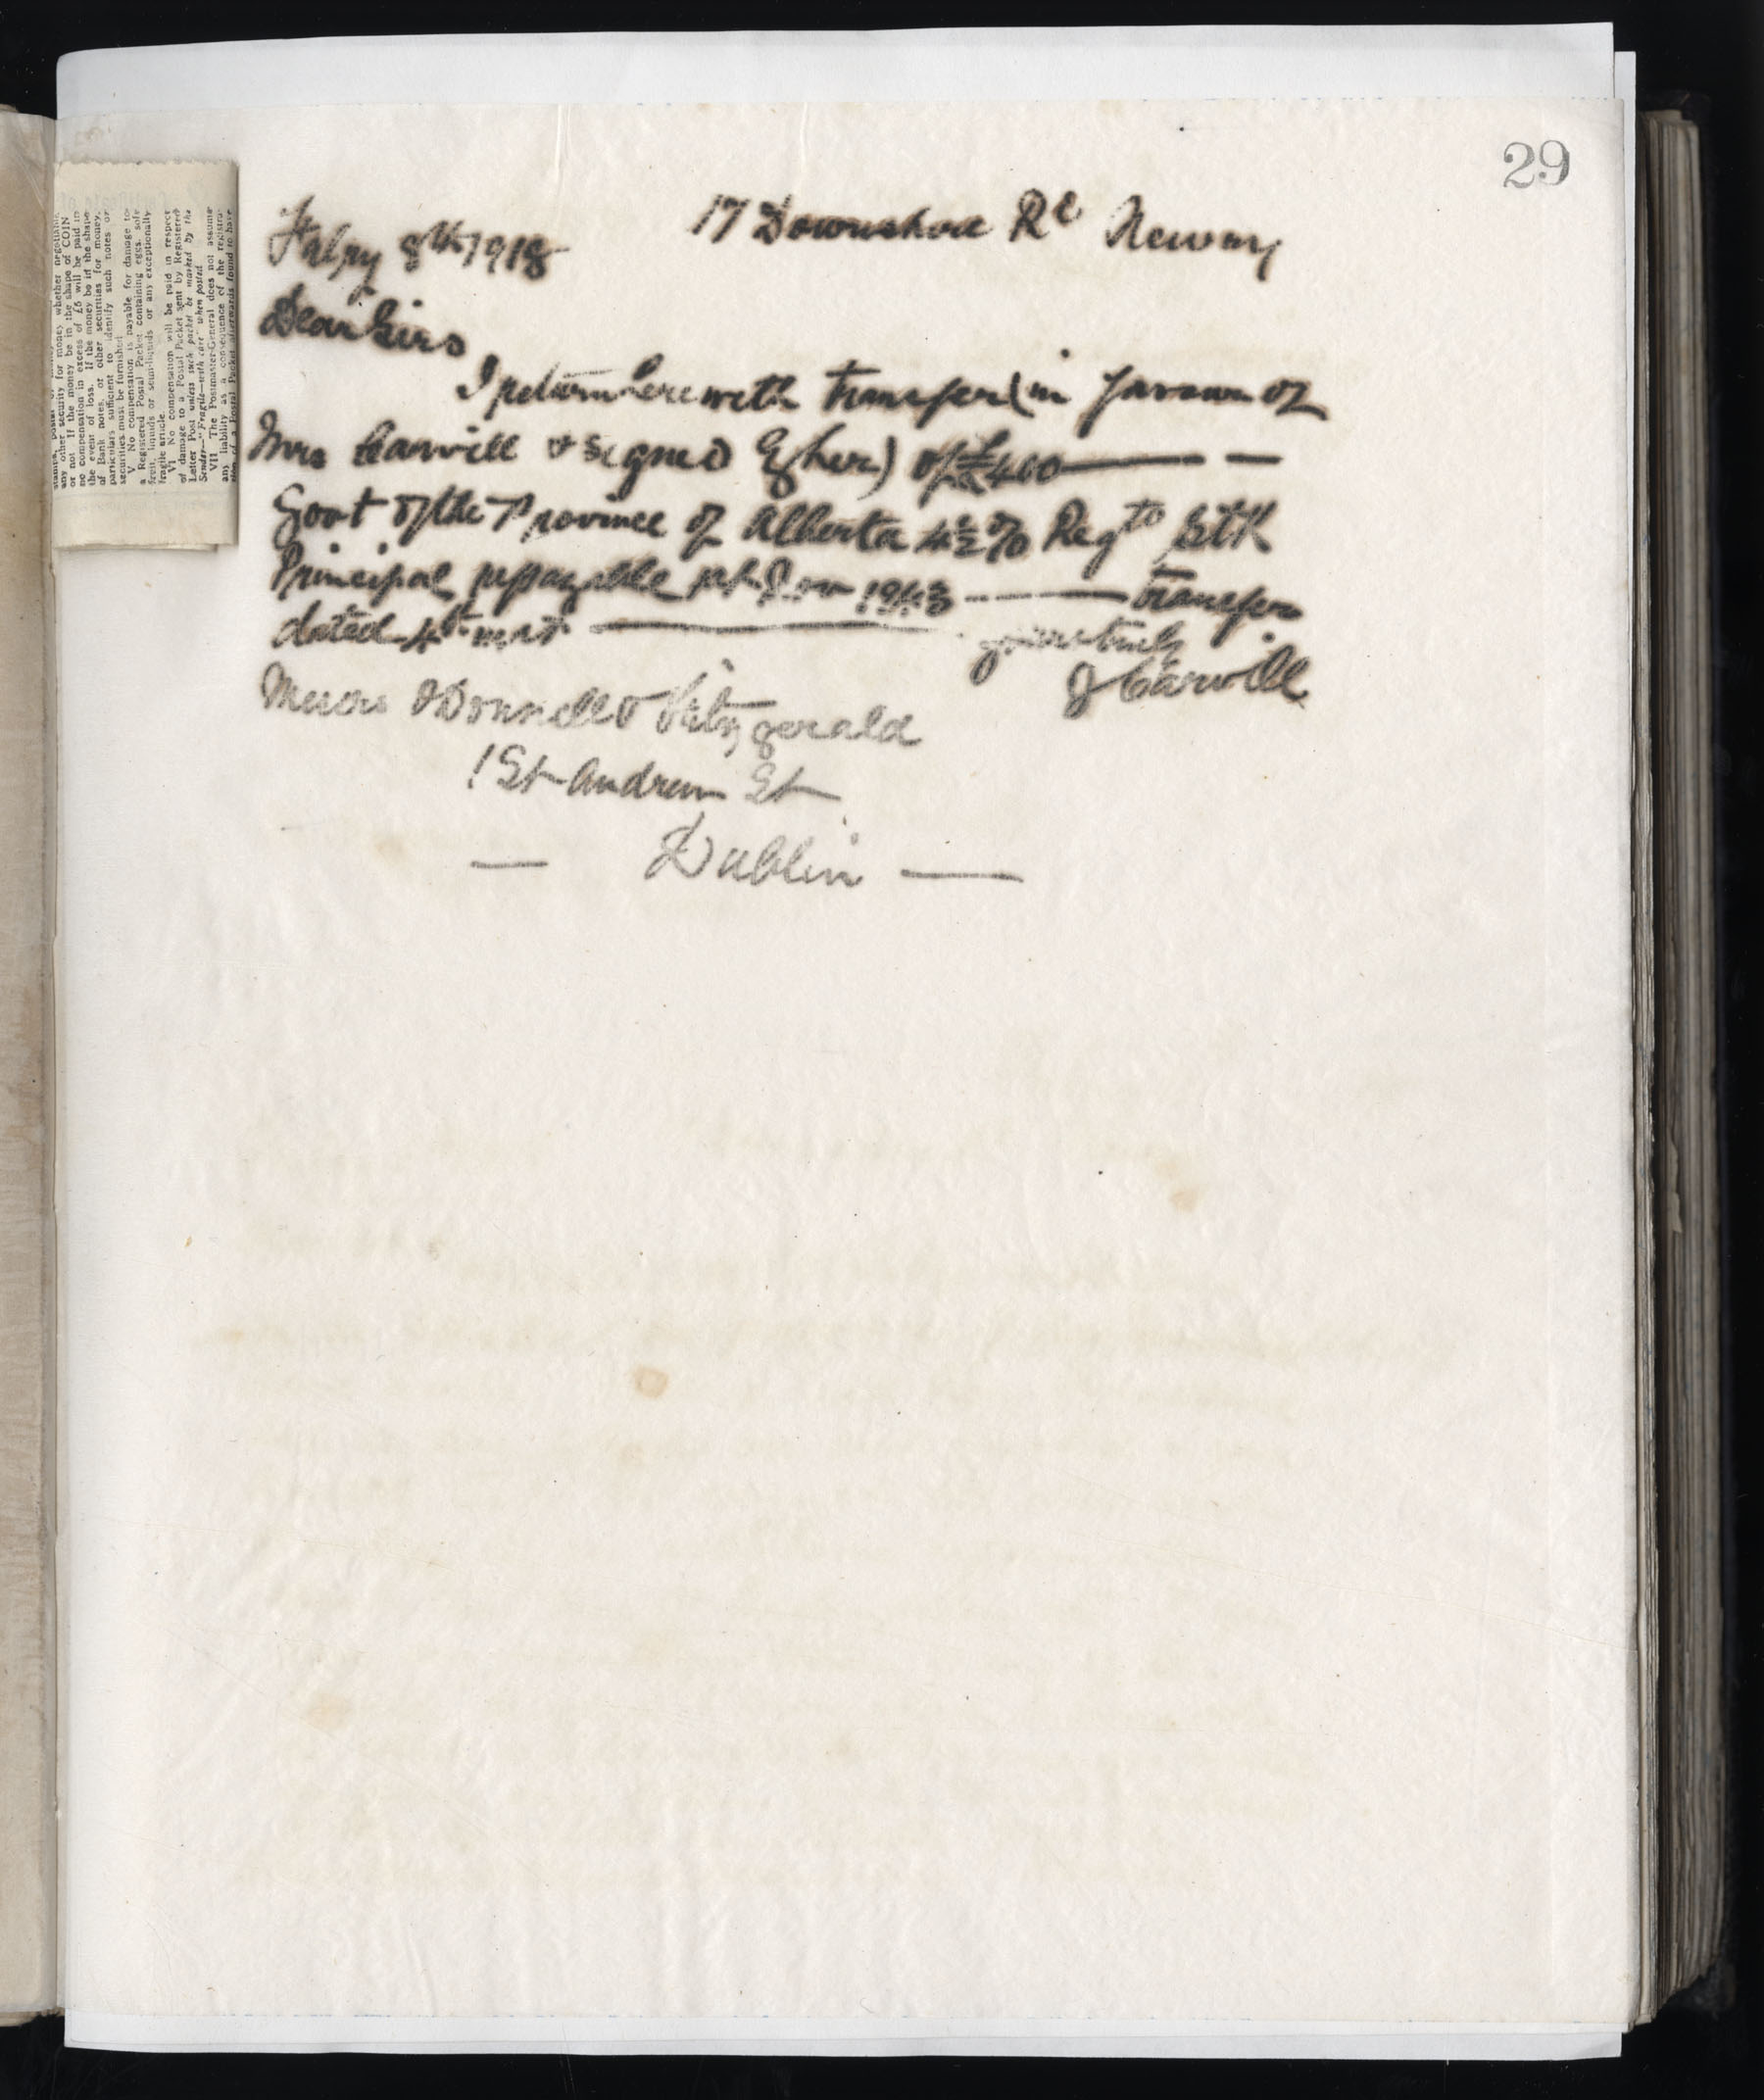 29
17 Downshire Rd Newry
Febry 8th 1918
Dear Sirs
I return herewith transfer (in favour of
Mrs Carvill & signed by her) of £400 —
Govt of the Province of Alberta 4½% Regtd Stk
Principal repayable 1943 — transfer
dated 4th inst —
yours truly
J Carvill
Messrs O'Donnell & Fitzgerald
1 St Andrew St
— Dublin —
any other security for money whether negotiable
or not. If the money be in the shape of COIN
no compensation in excess of £5 will be paid in
the event of loss. If the money be in the shape
of Bank notes, or other securities for money,
particulars sufficient to identify such notes or
securities must be furnished
V No compensation is payable for damage to
a Registered Postal Packet containing eggs, soft
fruit, liquids or semi-liquids or any exceptionally
fragile article.
VI No compensation will be paid in respect
of damage to a Postal Packet sent by Registered
Letter Post unless such packet be marked by the
Sender—"Fragile—with care" when posted
VII The Postmaster-General does not assume
any liability as a consequence of the registra-
tion of a Postal Packet afterwards found to have